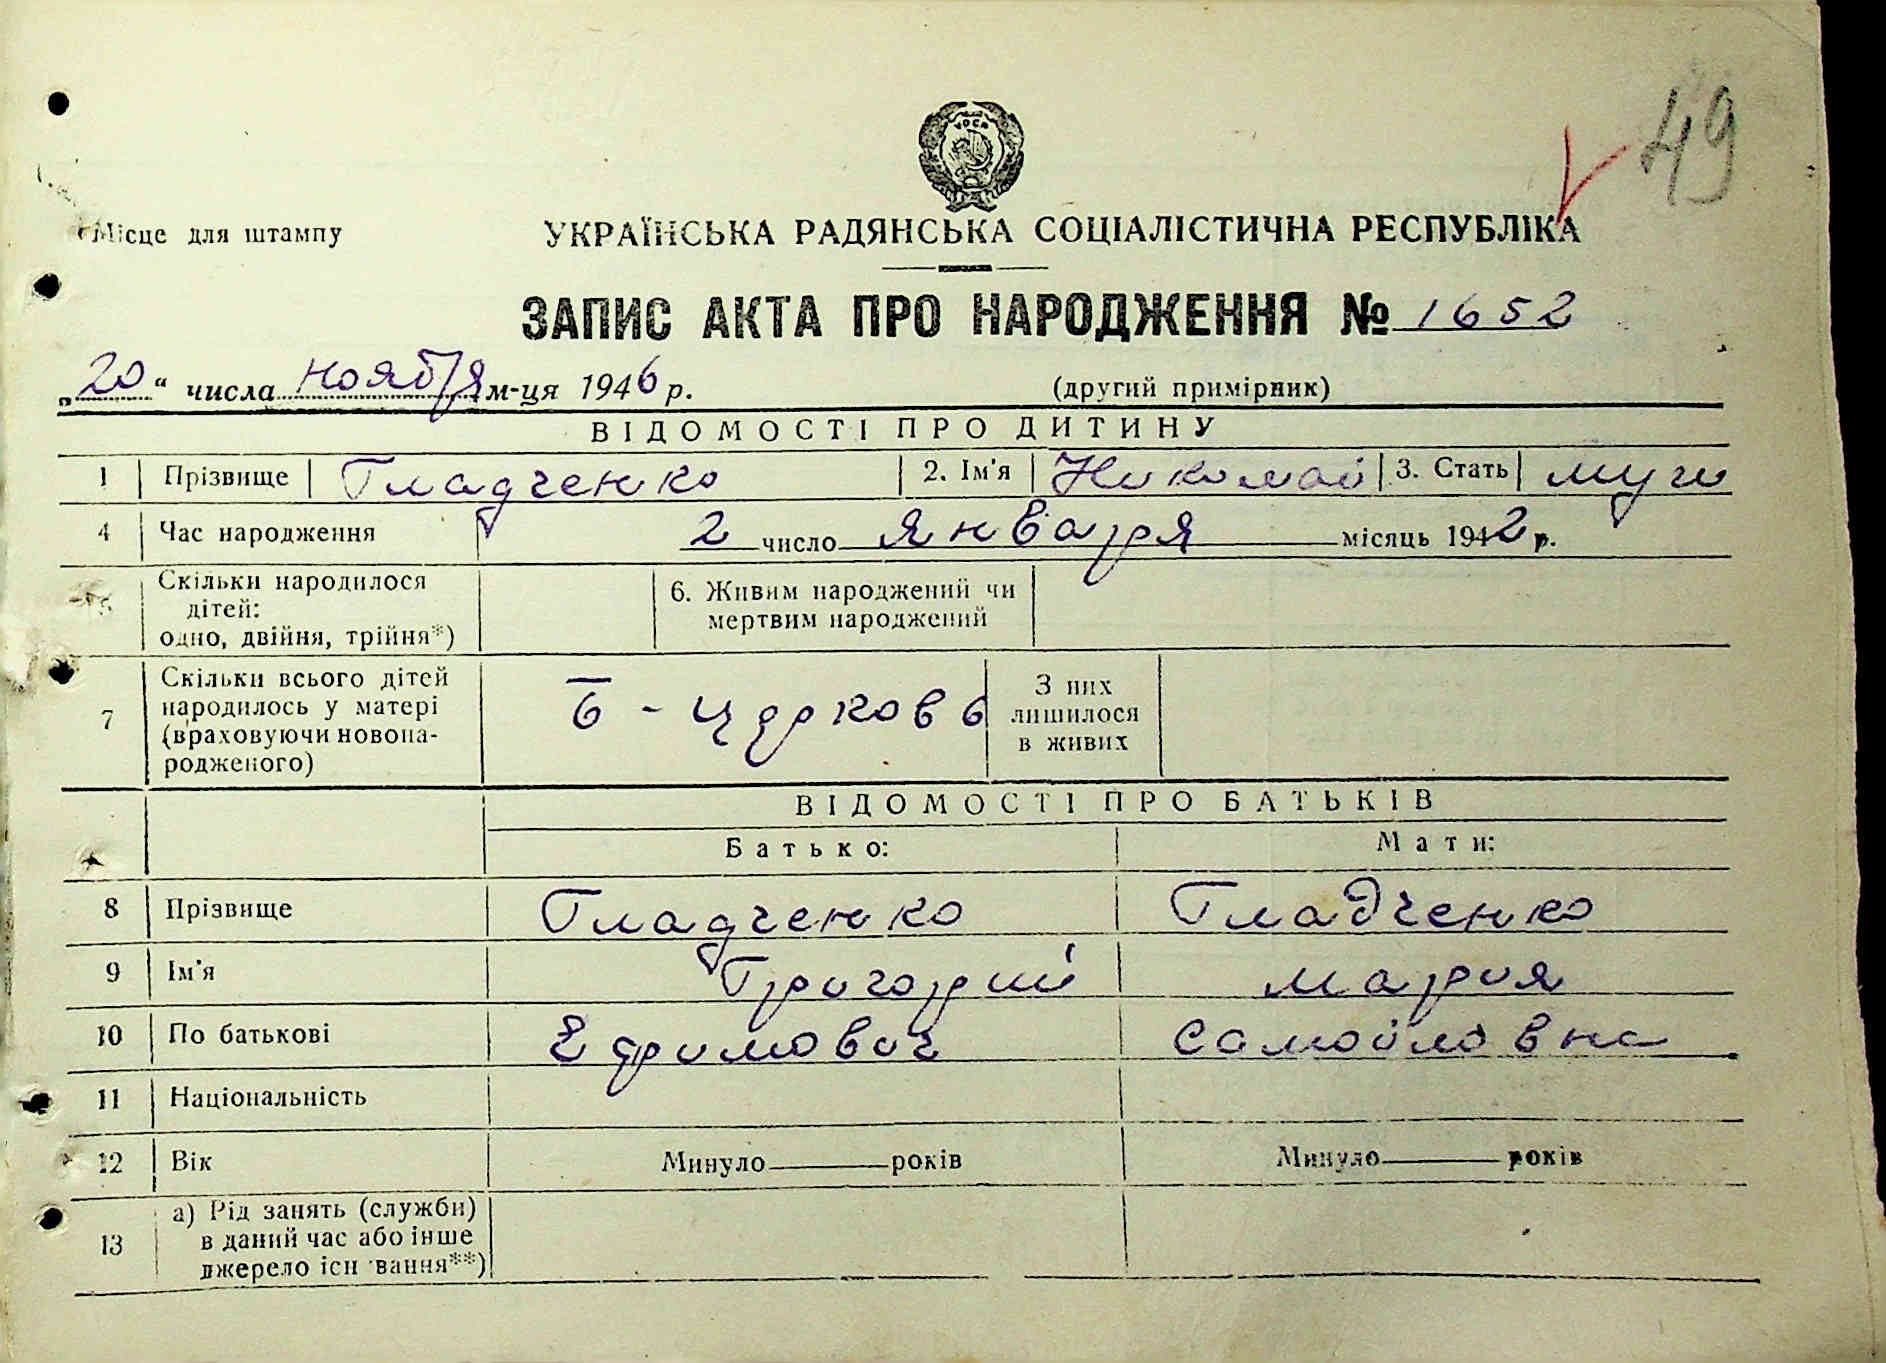 49
УРСР
Місце для штампу
УКРАЇНСЬКА РАДЯНСЬКА СОЦІАЛІСТИЧНА РЕСПУБЛІКА
ЗАПИС АКТА ПРО НАРОДЖЕННЯ № 1652
„20“ числа ноября м-ця 1946 р. (другий примірник)
ВІДОМОСТІ ПРО ДИТИНУ
1 Прізвище Гладченко 2. Ім'я Николай 3. Стать муж
4 Час народження 2 число января місяць 1942 р.
5 Скільки народилося дітей: одно, двійня, трійня*) 6. Живим народжений чи мертвим народжений
7 Скільки всього дітей народилось у матері (враховуючи новонародженого) Б-Церковь З них лишилося в живих
ВІДОМОСТІ ПРО БАТЬКІВ
Батько: Мати:
8 Прізвище Гладченко Гладченко
9 Ім'я Григорий Мария
10 По батькові Ефимович Самойловна
11 Національність
12 Вік Минуло років Минуло років
13 а) Рід занять (служби) в даний час або інше джерело існування**)